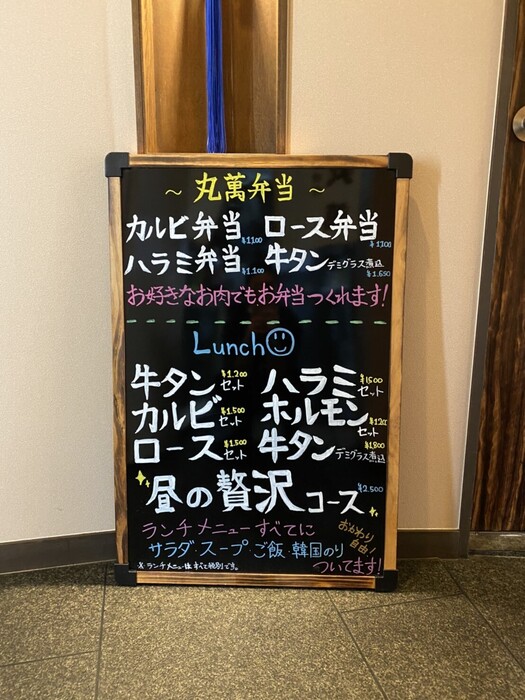 ～ 丸萬弁当 ～
カルビ弁当 ¥1,100 ロース弁当 ¥1,100
ハラミ弁当 ¥1,100 牛タンデミグラス煮込 ¥1,650
お好きなお肉でもお弁当つくれます!
Lunch
牛タンセット ¥1,200 ハラミセット ¥1500
カルビセット ¥1,500 ホルモンセット
ロースセット ¥1,500 牛タンデミグラス煮込 ¥1,800
昼の贅沢コース ¥2,500
ランチメニューすべてに
サラダ・スープ・ご飯・韓国のり
おかわり自由!
ついてます!
※ランチメニューは すべて税別です。